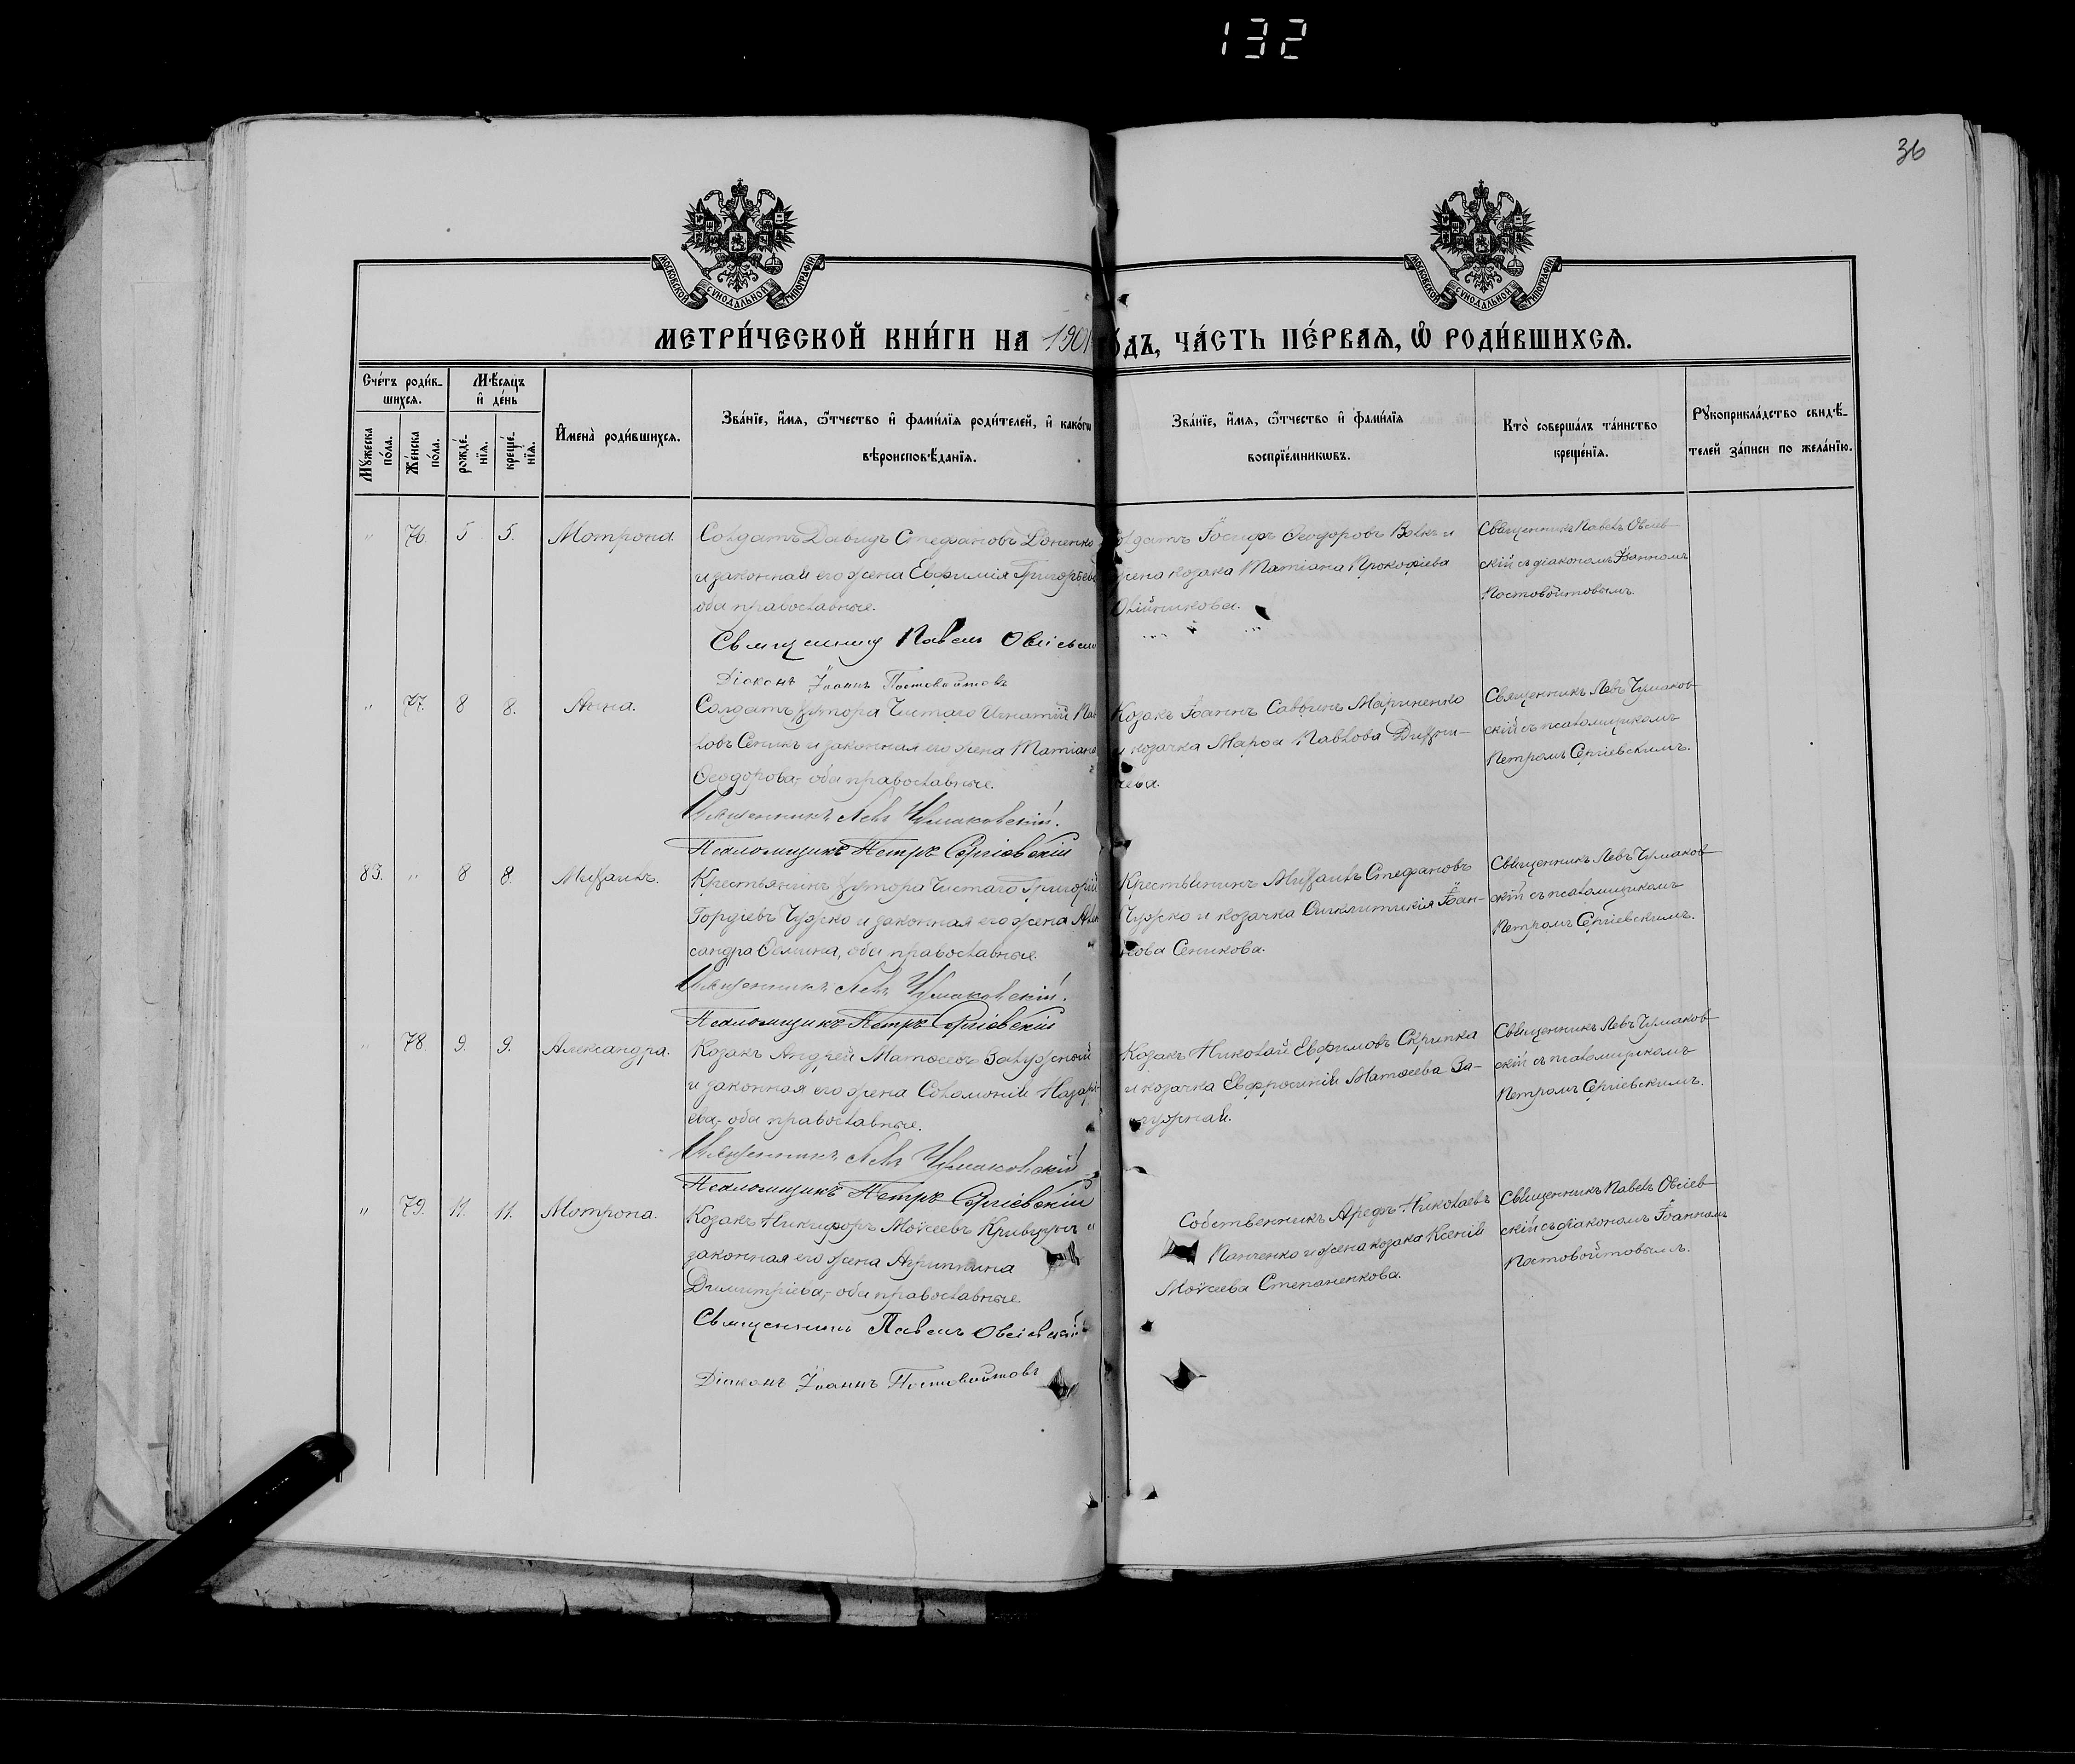 132
36
МОСКОВСКОЙ СѴНОДАЛЬНОЙ ТИПОГРАФІИ
МОСКОВСКОЙ СѴНОДАЛЬНОЙ ТИПОГРАФІИ
МЕТРИ́ЧЕСКОЙ КНИ́ГИ НА 1901 ГО́ДЪ, ЧА́СТЬ ПЕ́РВАѦ, Ѽ РОДИ́ВШИХСѦ.
Сче́тъ роди́в-
шихсѧ.
Мꙋжеска по́ла.
Же́нска по́ла.
Мѣ́сѧцъ
и҆ де́нь
рожде́-
нїѧ.
креще́-
нїѧ.
И҆мена̀ роди́вшихсѧ.
Зва́нїе, и҆́мѧ, ѻ҆́тчество и҆ фами́лїѧ роди́телей, и҆ како́гѡ
вѣроисповѣ́данїѧ.
Зва́нїе, и҆́мѧ, ѻ҆́тчество и҆ фами́лїѧ
воспрїе́мникѡвъ.
Кто̀ соверша́лъ та́инство
креще́нїѧ.
Рꙋкоприкла́дство свидѣ́-
телей за́писи по жела́нїю.
" 76. 5. 5. Мотрона.
Солдатъ Давидъ Стефановъ Доненко
и законная его жена Евфимія Григорьева
оба православные.
Священникъ Павелъ Овсіевскій
Діаконъ Іоаннъ Постовойтовъ
Солдатъ Іосифъ Ѳеодоровъ Волкъ и
жена козака Татіана Прокофіева
Олійникова.
Священникъ Павелъ Овсіев-
скій съ діакономъ Іоанномъ
Постовойтовымъ.
" 77. 8 8. Анна.
Солдатъ хутора Чистаго Игнатій Пав-
ловъ Сеникъ и законная его жена Татіана
Ѳеодорова,- оба православные.
Священникъ Левъ Чумаковскій.
Псаломщикъ Петръ Сергіевскій
Козакъ Іоаннъ Саввинъ Мариненко
и козачка Марѳа Павлова
чева.
Священникъ Левъ Чумаков-
скій съ псаломщикомъ
Петромъ Сергіевскимъ.
83. " 8 8. Михаилъ.
Крестьянинъ хутора Чистаго Григорій
Гордіевъ Чужко и законная его жена Алек-
сандра Ѳомина, оба православные.
Священникъ Левъ Чумаковскій.
Псаломщикъ Петръ Сергіевскій
Крестьянинъ Михаилъ Стефановъ
Чужко и козачка Синклитикія Іоан-
нова Сеникова.
Священникъ Левъ Чумаков-
скій съ псаломщикомъ
Петромъ Сергіевскимъ.
" 78. 9. 9. Александра.
Козакъ Андрей Матѳеевъ Залужный
и законная его жена Соломонія Назарі-
ева,- оба православные.
Священникъ Левъ Чумаковскій
Псаломщикъ Петръ Сергіевскій
Козакъ Николай Евфимовъ Скрипка
и козачка Евфросинія Матѳеева За-
лужная.
Священникъ Левъ Чумаков-
скій съ псаломщикомъ
Петромъ Сергіевскимъ.
" 79. 11. 11. Мотрона.
Козакъ Никифоръ Моѵсеевъ и
законная его жена Агриппина
Димитріева,- оба православные
Священникъ Павелъ Овсіевскій
Діаконъ Іоаннъ Постовойтовъ
Собственникъ Арефъ Николаевъ
Панченко и жена козака Ксенія
Моѵсеева Степаненкова.
Священникъ Павелъ Овсіев-
скій съ діакономъ Іоанномъ
Постовойтовымъ.